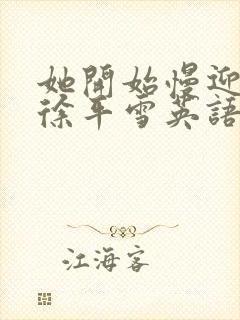 她開始慢迎
徐平雪英語
江海客